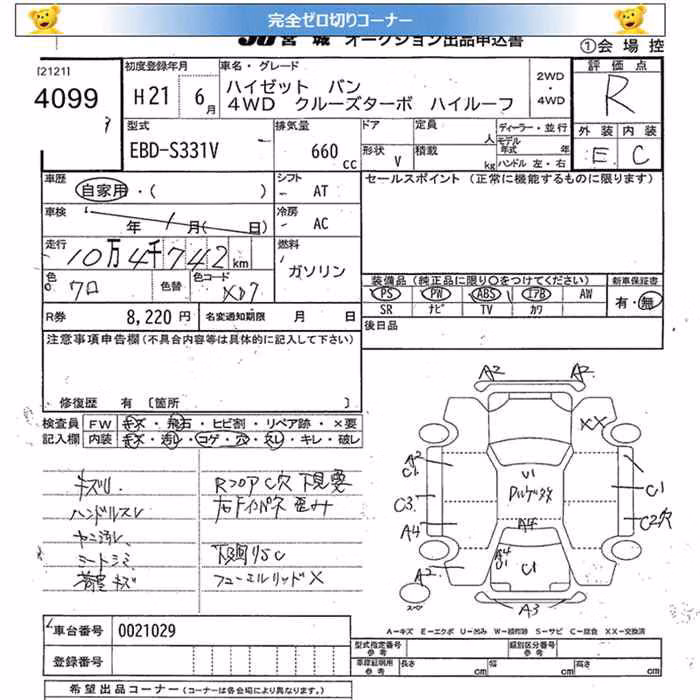 完全ゼロ切りコーナー
JU宮城 オークション出品申込書
①会場控
[2121]
4099
初度登録年月
H21 6月
車名・グレード
ハイゼット バン
4WD クルーズターボ ハイルーフ
2WD
・
4WD
評価点
R
型式
EBD-S331V
排気量
660
cc
ドア
形状 V
定員 人
積載 kg
ディーラー・並行
モデル年式 年
ハンドル 左・右
外装 内装
E C
車歴
自家用・( )
シフト
AT
セールスポイント (正常に機能するものに限ります)
車検
年 1月( 日)
冷房
AC
走行
10万4千742km
燃料
ガソリン
色
クロ
色替
色コード
X07
装備品(純正品に限り○をつけてください)
新車保証書
PS PW ABS エアB AW
有・無
SR ナビ TV カワ
R券 8,220円
名変通知期限 月 日
後日品
注意事項申告欄(不具合内容等は具体的に記入して下さい)
修復歴 有 〔箇所
検査員
記入欄
FW キズ・飛石・ヒビ割・リペア跡・×要
内装 キズ・汚レ・コゲ・穴・スレ・キレ・破レ
キズ凹
ハンドルスレ
ヤニ汚レ
シートシミ
荷室キズ
RフロアC穴 下現要
右ドインパネ歪み
下廻りSC
フューエルリッドX
A2 A2
XX
A2
C1
C3
A4
A2
U1
A4
A4
U1
C1
C1
C2穴
A3
スペア
A-キズ E-エクボ U-凹み W-補修跡 S-サビ C-腐食 XX-交換済
車台番号 0021029
登録番号
型式指定番号
参考
類別区分番号
参考
車庫証明用
参考
長さ cm
幅 cm
高さ cm
希望出品コーナー(コーナーは各会場により異なります。)